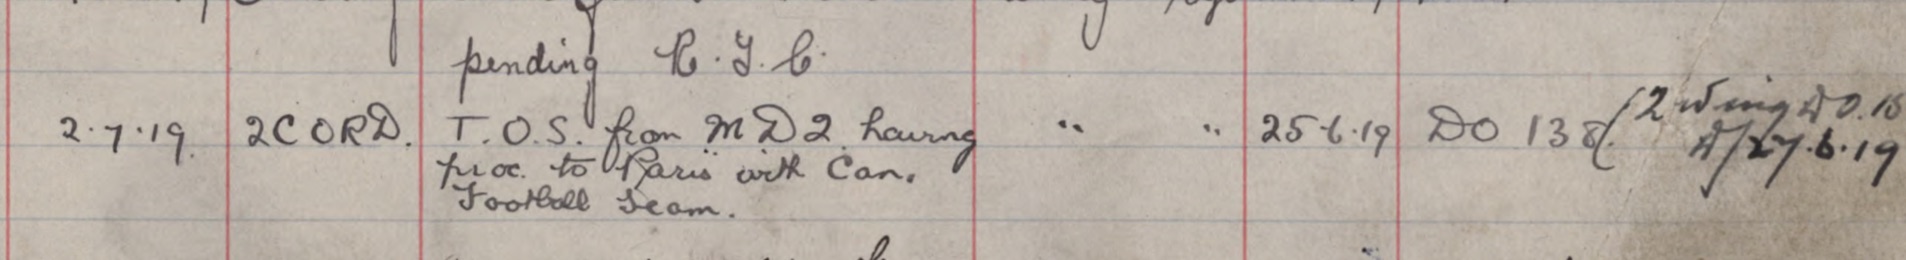 pending R.T.C.
2.7.19. 2CORD. T.O.S. from MD2 having " " 25.6.19 DO 138 (2 Wing DO.
proc. to Paris with Can. D/27.6.19
Football Team.